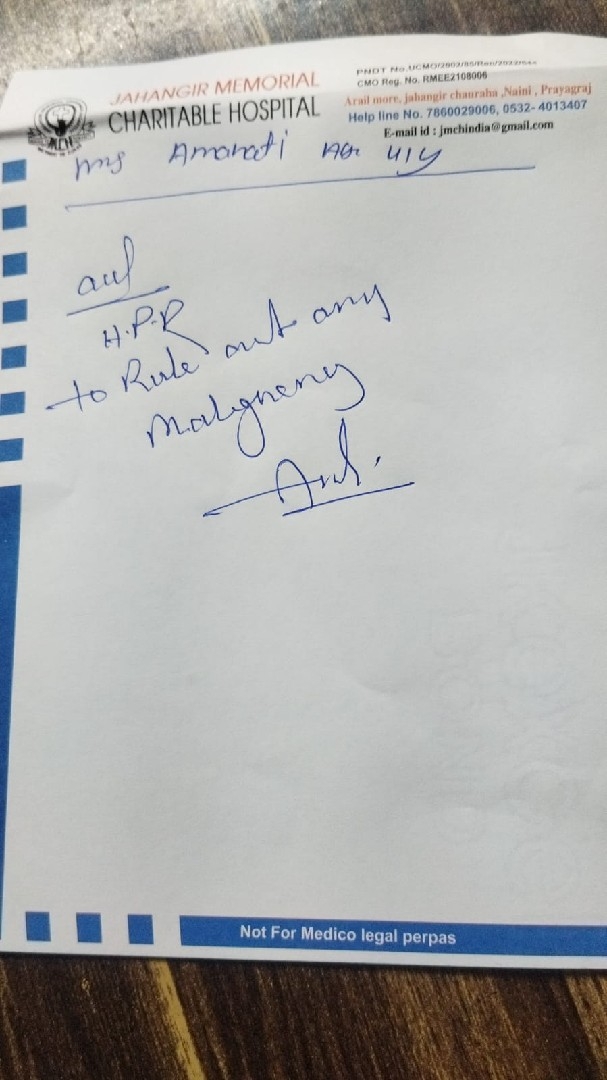 JAHANGIR MEMORIAL
CHARITABLE HOSPITAL
CMO Reg. No. RMEE2108006
Arail more, jahangir chauraha ,Naini , Prayagraj
Help line No. 7860029006, 0532- 4013407
E-mail id : jmchindia@gmail.com
Amarati 41y
H.P.R
to Rule out any
Malignency
Not For Medico legal perpas